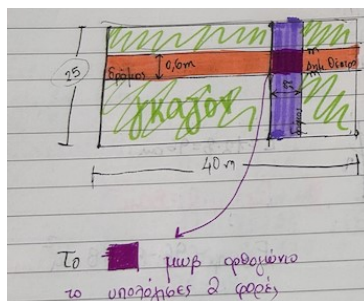 25
δρόμος
0,6m
γκαζόν
40 m
Το
μωβ ορθογώνιο
το υπολόγισες 2 φορές